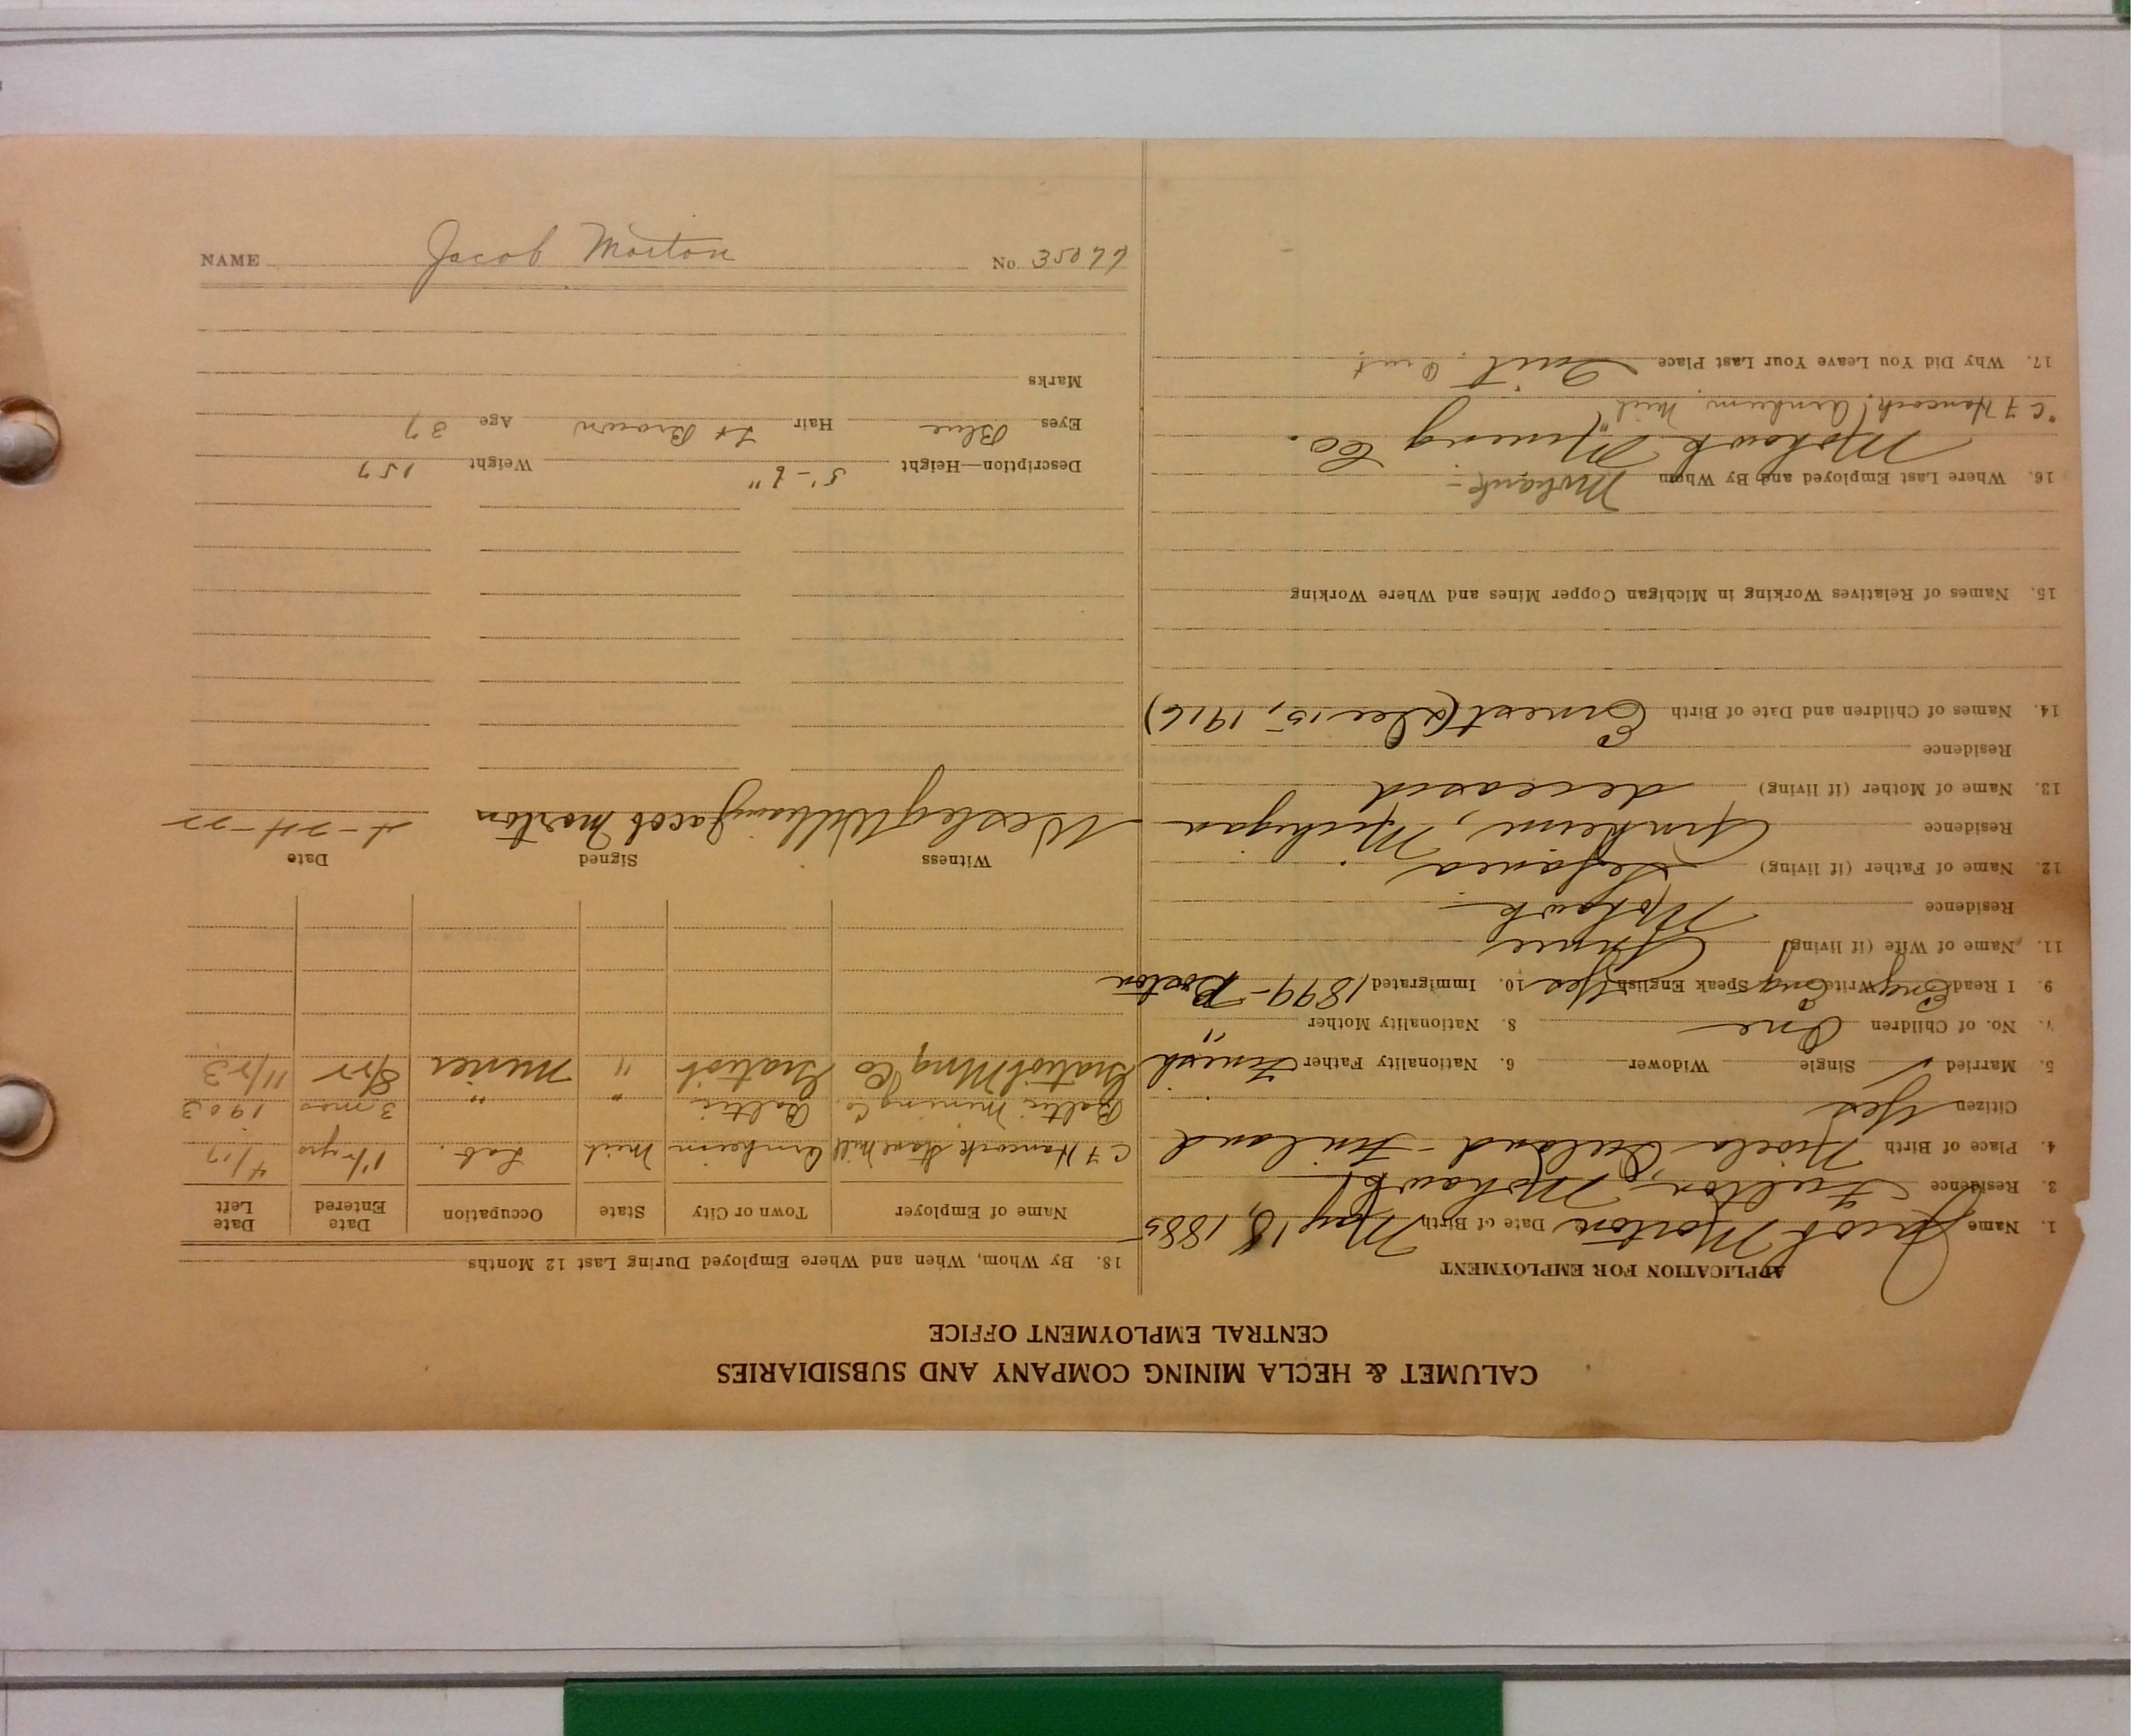 CALUMET & HECLA MINING COMPANY AND SUBSIDIARIES
CENTRAL EMPLOYMENT OFFICE
APPLICATION FOR EMPLOYMENT
1. Name Jacob Morton Date of Birth May 18, 1885
3. Residence Fulton, Mohawk
4. Place of Birth Finland
Citizen Yes
5. Married ✓ Single Widower 6. Nationality Father Finnish
7. No. of Children One 8. Nationality Mother "
9. I Read Eng Write Eng Speak English Yes 10. Immigrated 1899 - Boston
11. Name of Wife (if living)
Residence Mohawk
12. Name of Father (if living)
Residence Arnheim, Michigan
13. Name of Mother (if living) deceased
Residence
14. Names of Children and Date of Birth Ernest (Dec 15, 1916)
15. Names of Relatives Working in Michigan Copper Mines and Where Working
16. Where Last Employed and By Whom Mohawk -
Mohawk Mining Co.
"C F Hancock" Arnheim, Mich
17. Why Did You Leave Your Last Place Quit.
18. By Whom, When and Where Employed During Last 12 Months
Name of Employer Town or City State Occupation Date Entered Date Left
C F Hancock Stave Mill Arnheim Mich Lab. 1 1/2 yrs 4/17
Baltic Mining Co. Baltic " " 3 mos 1903
Gratiot Mng Co Gratiot " Miner 8/22 11/23
Witness Signed Date
Wesley Williams Jacob Morton 4-24-22
Description—Height 5'-6" Weight 157
Eyes Blue Hair Lt Brown Age 37
Marks
NAME Jacob Morton No. 35077